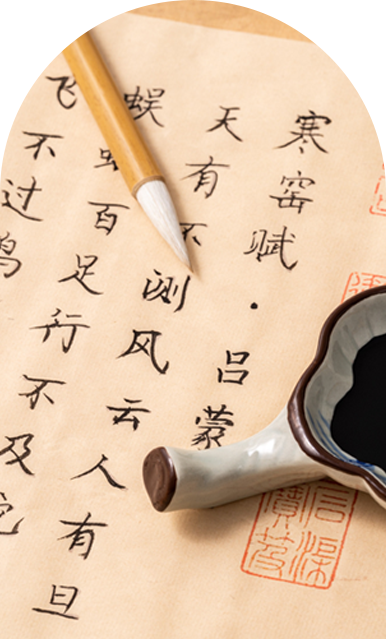 寒窑赋·吕蒙
天有不测风云人有旦
蜈百足行不及
飞不过